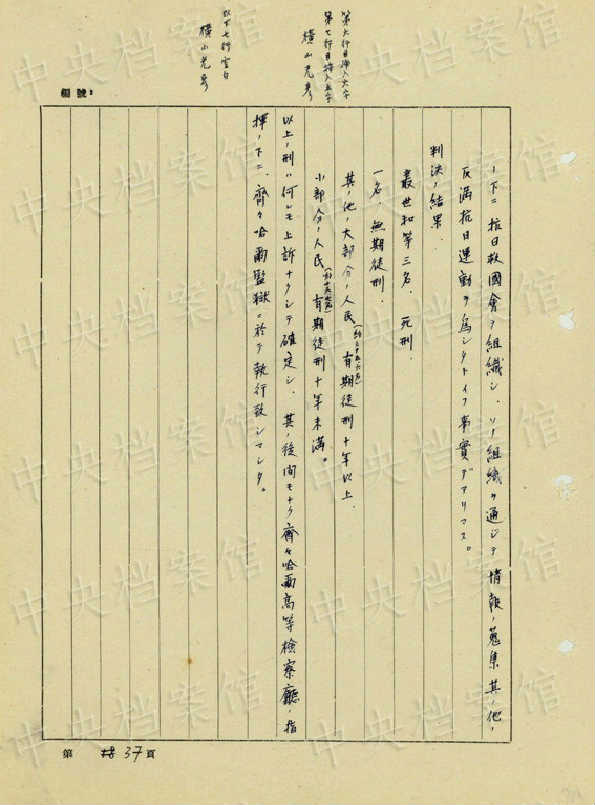 第六行目挿入六字
第七行目挿入五字
横山光彦
以下七行空白
横山光彦
編號:
ノ下ニ抗日救國會ヲ組織シ、ソノ組織ヲ通ジテ情報ノ蒐集其ノ他ノ
反満抗日運動ヲ為シタトイフ事實デアリマス。
判決ノ結果、
叢世和等三名、死刑、
一名、無期徒刑、
其ノ他ノ大部分ノ人民 有期徒刑十年以上、
小部分ノ人民 有期徒刑十年未満。
以上ノ刑ハ何レモ上訴ナクシテ確定シ、其ノ後間モナク齊々哈爾高等檢察廳ノ指
揮ノ下ニ、齊々哈爾監獄ニ於テ執行致シマシタ。
第 37 頁
中央档案馆